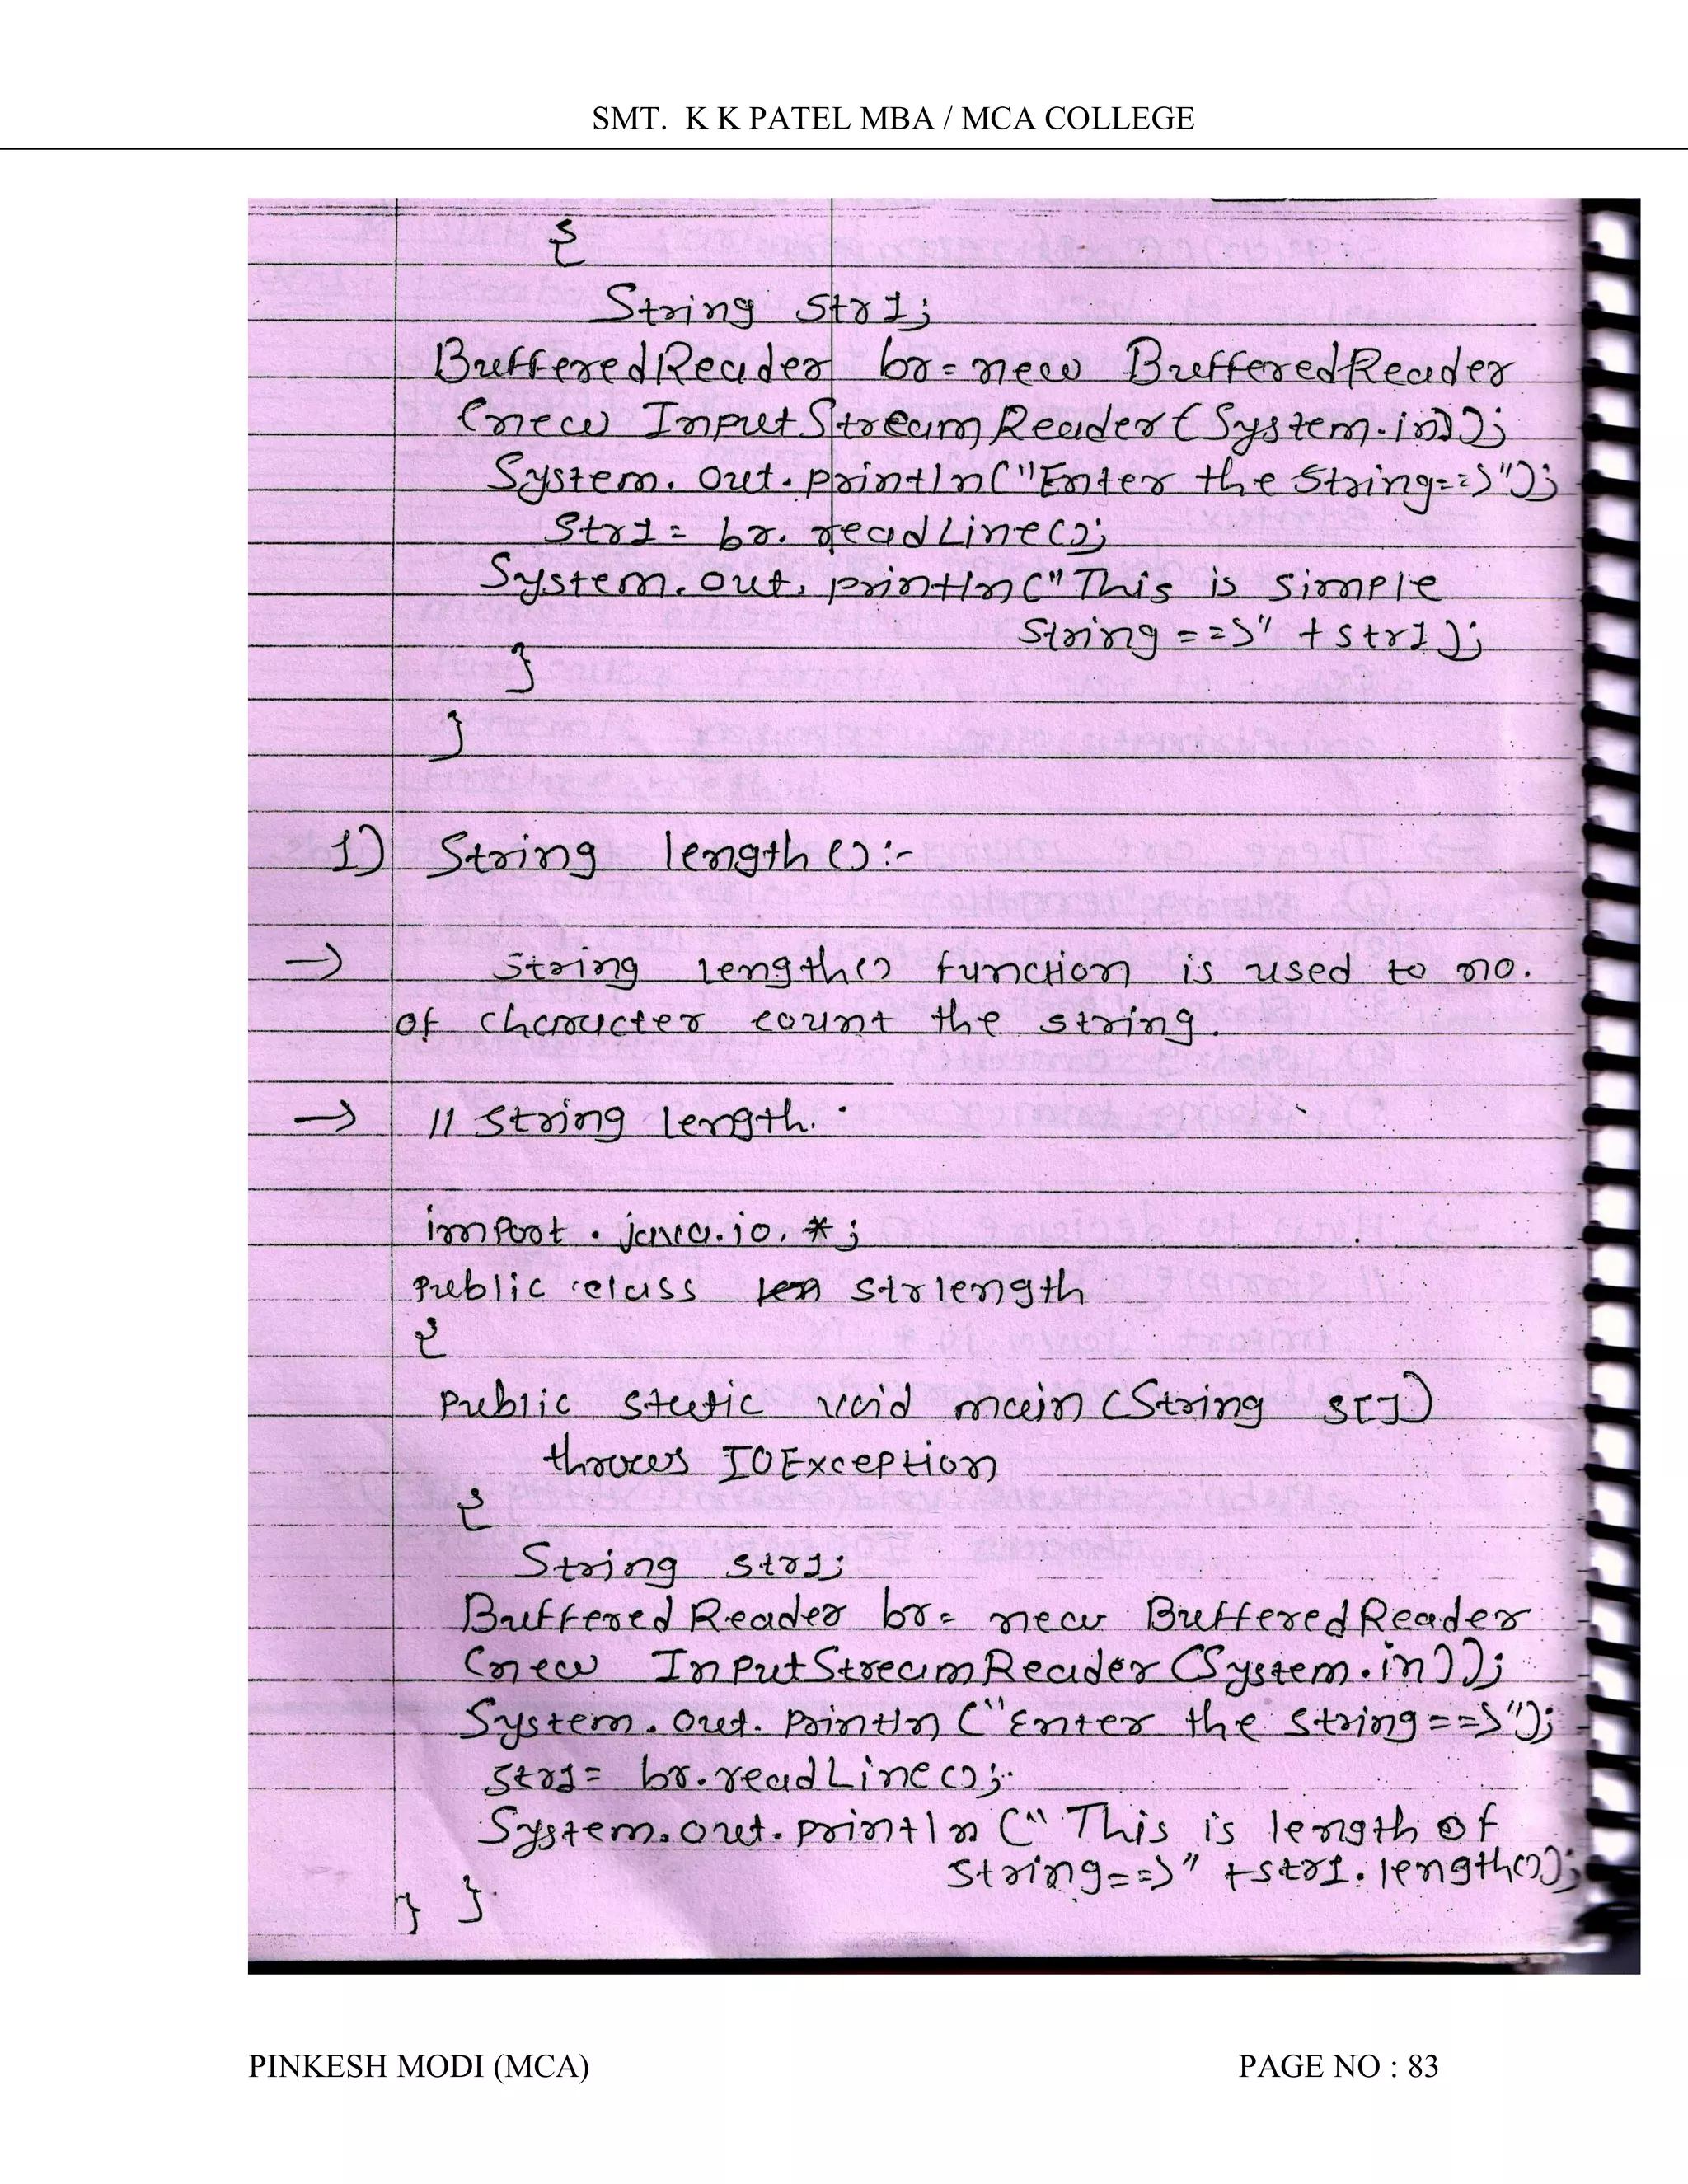 SMT. K K PATEL MBA / MCA COLLEGE
{
String str1;
BufferedReader br = new BufferedReader
(new InputStreamReader(System.in));
System.out.println("Enter the String==>");
Str1 = br.readLine();
System.out.println("This is simple
String ==>" + str1);
}
}
1) String length():-
→ String length() function is used to no.
of character count the string.
→ // String length.
import . java.io.*;
public class strlength
{
public static void main (String s[])
throws IOException
{
String str1;
BufferedReader br = new BufferedReader
(new InputStreamReader (System.in));
System.out.println ("Enter the string==>");
str1 = br.readLine();
System.out.println ("This is length of
string==>" +str1.length());
} }
PINKESH MODI (MCA) PAGE NO : 83